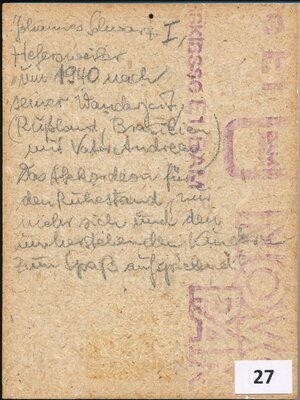 Johannes Schwarz I,
Hefersweiler
um 1940 nach
seiner Wanderzeit
(Rußland, Brasilien
mit Vater Andreas)
Das Akkordeon für
den Ruhestand, nur
mehr sich und den
umherstehenden Kindern
zum Spaß aufspielend
27